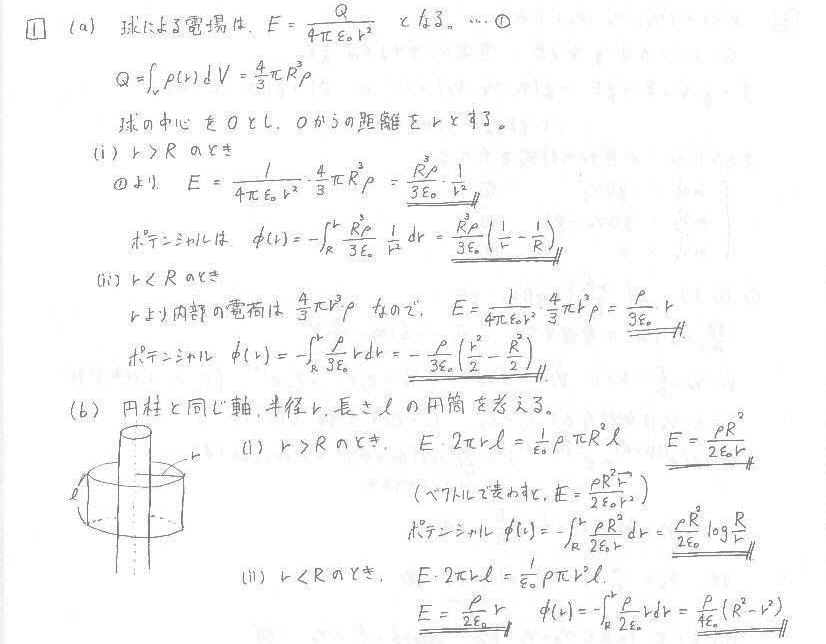 1 (a) 球による電場は、E = Q/(4πε₀r²) となる。…①
Q = ∫ᵥ ρ(r) dV = 4/3 πR³ρ
球の中心を0とし、0からの距離をrとする。
(i) r > R のとき
①より E = 1/(4πε₀r²) · 4/3 πR³ρ = R³ρ/(3ε₀) · 1/r²
ポテンシャルは φ(r) = -∫_R^r R³ρ/(3ε₀) 1/r² dr = R³ρ/(3ε₀) (1/r - 1/R)
(ii) r < R のとき
rより内部の電荷は 4/3 πr³·ρ なので、 E = 1/(4πε₀r²) · 4/3 πr³ρ = ρ/(3ε₀) r
ポテンシャル φ(r) = -∫_R^r ρ/(3ε₀) r dr = - ρ/(3ε₀) (r²/2 - R²/2)
(b) 円柱と同じ軸、半径r、長さlの円筒を考える。
r
l
(i) r > R のとき、 E·2πrl = 1/ε₀ ρπR²l E = ρR²/(2ε₀r)
(ベクトルで表わすと、E = ρR²r⃗/(2ε₀r²))
ポテンシャル φ(r) = -∫_R^r ρR²/(2ε₀r) dr = ρR²/(2ε₀) log R/r
(ii) r < R のとき、 E·2πrl = 1/ε₀ ρπr²l.
E = ρ/(2ε₀) r φ(r) = -∫_R^r ρ/(2ε₀) r dr = ρ/(4ε₀) (R² - r²)